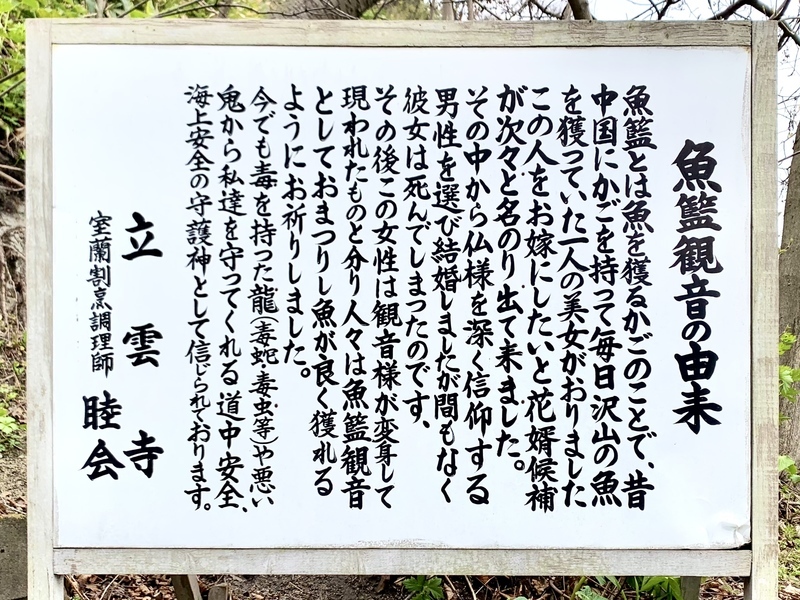 魚籃観音の由来
魚籃とは魚を獲るかごのことで、昔
中国にかごを持って毎日沢山の魚
を獲っていた一人の美女がおりました
この人をお嫁にしたいと花婿候補
が次々と名のり出て来ました。
その中から仏様を深く信仰する
男性を選び結婚しましたが間もなく
彼女は死んでしまったのです、
その後この女性は観音様が変身して
現われたものと分り人々は魚籃観音
としておまつりし魚が良く獲れる
ようにお祈りしました。
今でも毒を持った龍(毒蛇・毒虫等)や悪い
鬼から私達を守ってくれる道中安全、
海上安全の守護神として信じられております。
立雲寺
室蘭割烹調理師睦会